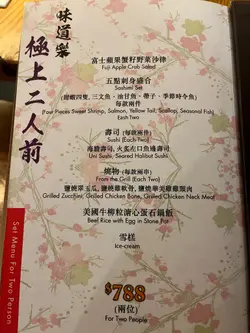 味道樂
極上二人前
Set Menu For Two Person
富士蘋果蟹籽野菜沙律
Fuji Apple Crab Salad
五點刺身盛合
Sashimi Set
(甜蝦四隻、三文魚、油甘魚、帶子、季節時令魚)
每款兩件
(Four Pieces Sweet Shrimp, Salmon, Yellow Tail, Scallop, Seasonal Fish)
Each Two
壽司 (每款兩件)
Sushi (Each Two)
海膽壽司,火炙左口魚邊壽司
Uni Sushi, Seared Halibut Sushi
燒物 (每款兩串)
From the Grill (Each Two)
鹽燒翠玉瓜, 鹽燒雞軟骨, 鹽燒華美雞雞頸肉
Grilled Zucchini, Grilled Chicken Bone, Grilled Chicken Neck Meat
美國牛柳粒滑心蛋石鍋飯
Beef Rice with Egg in Stone Pot
雪糕
Ice-cream
$788
(兩位)
For Two People